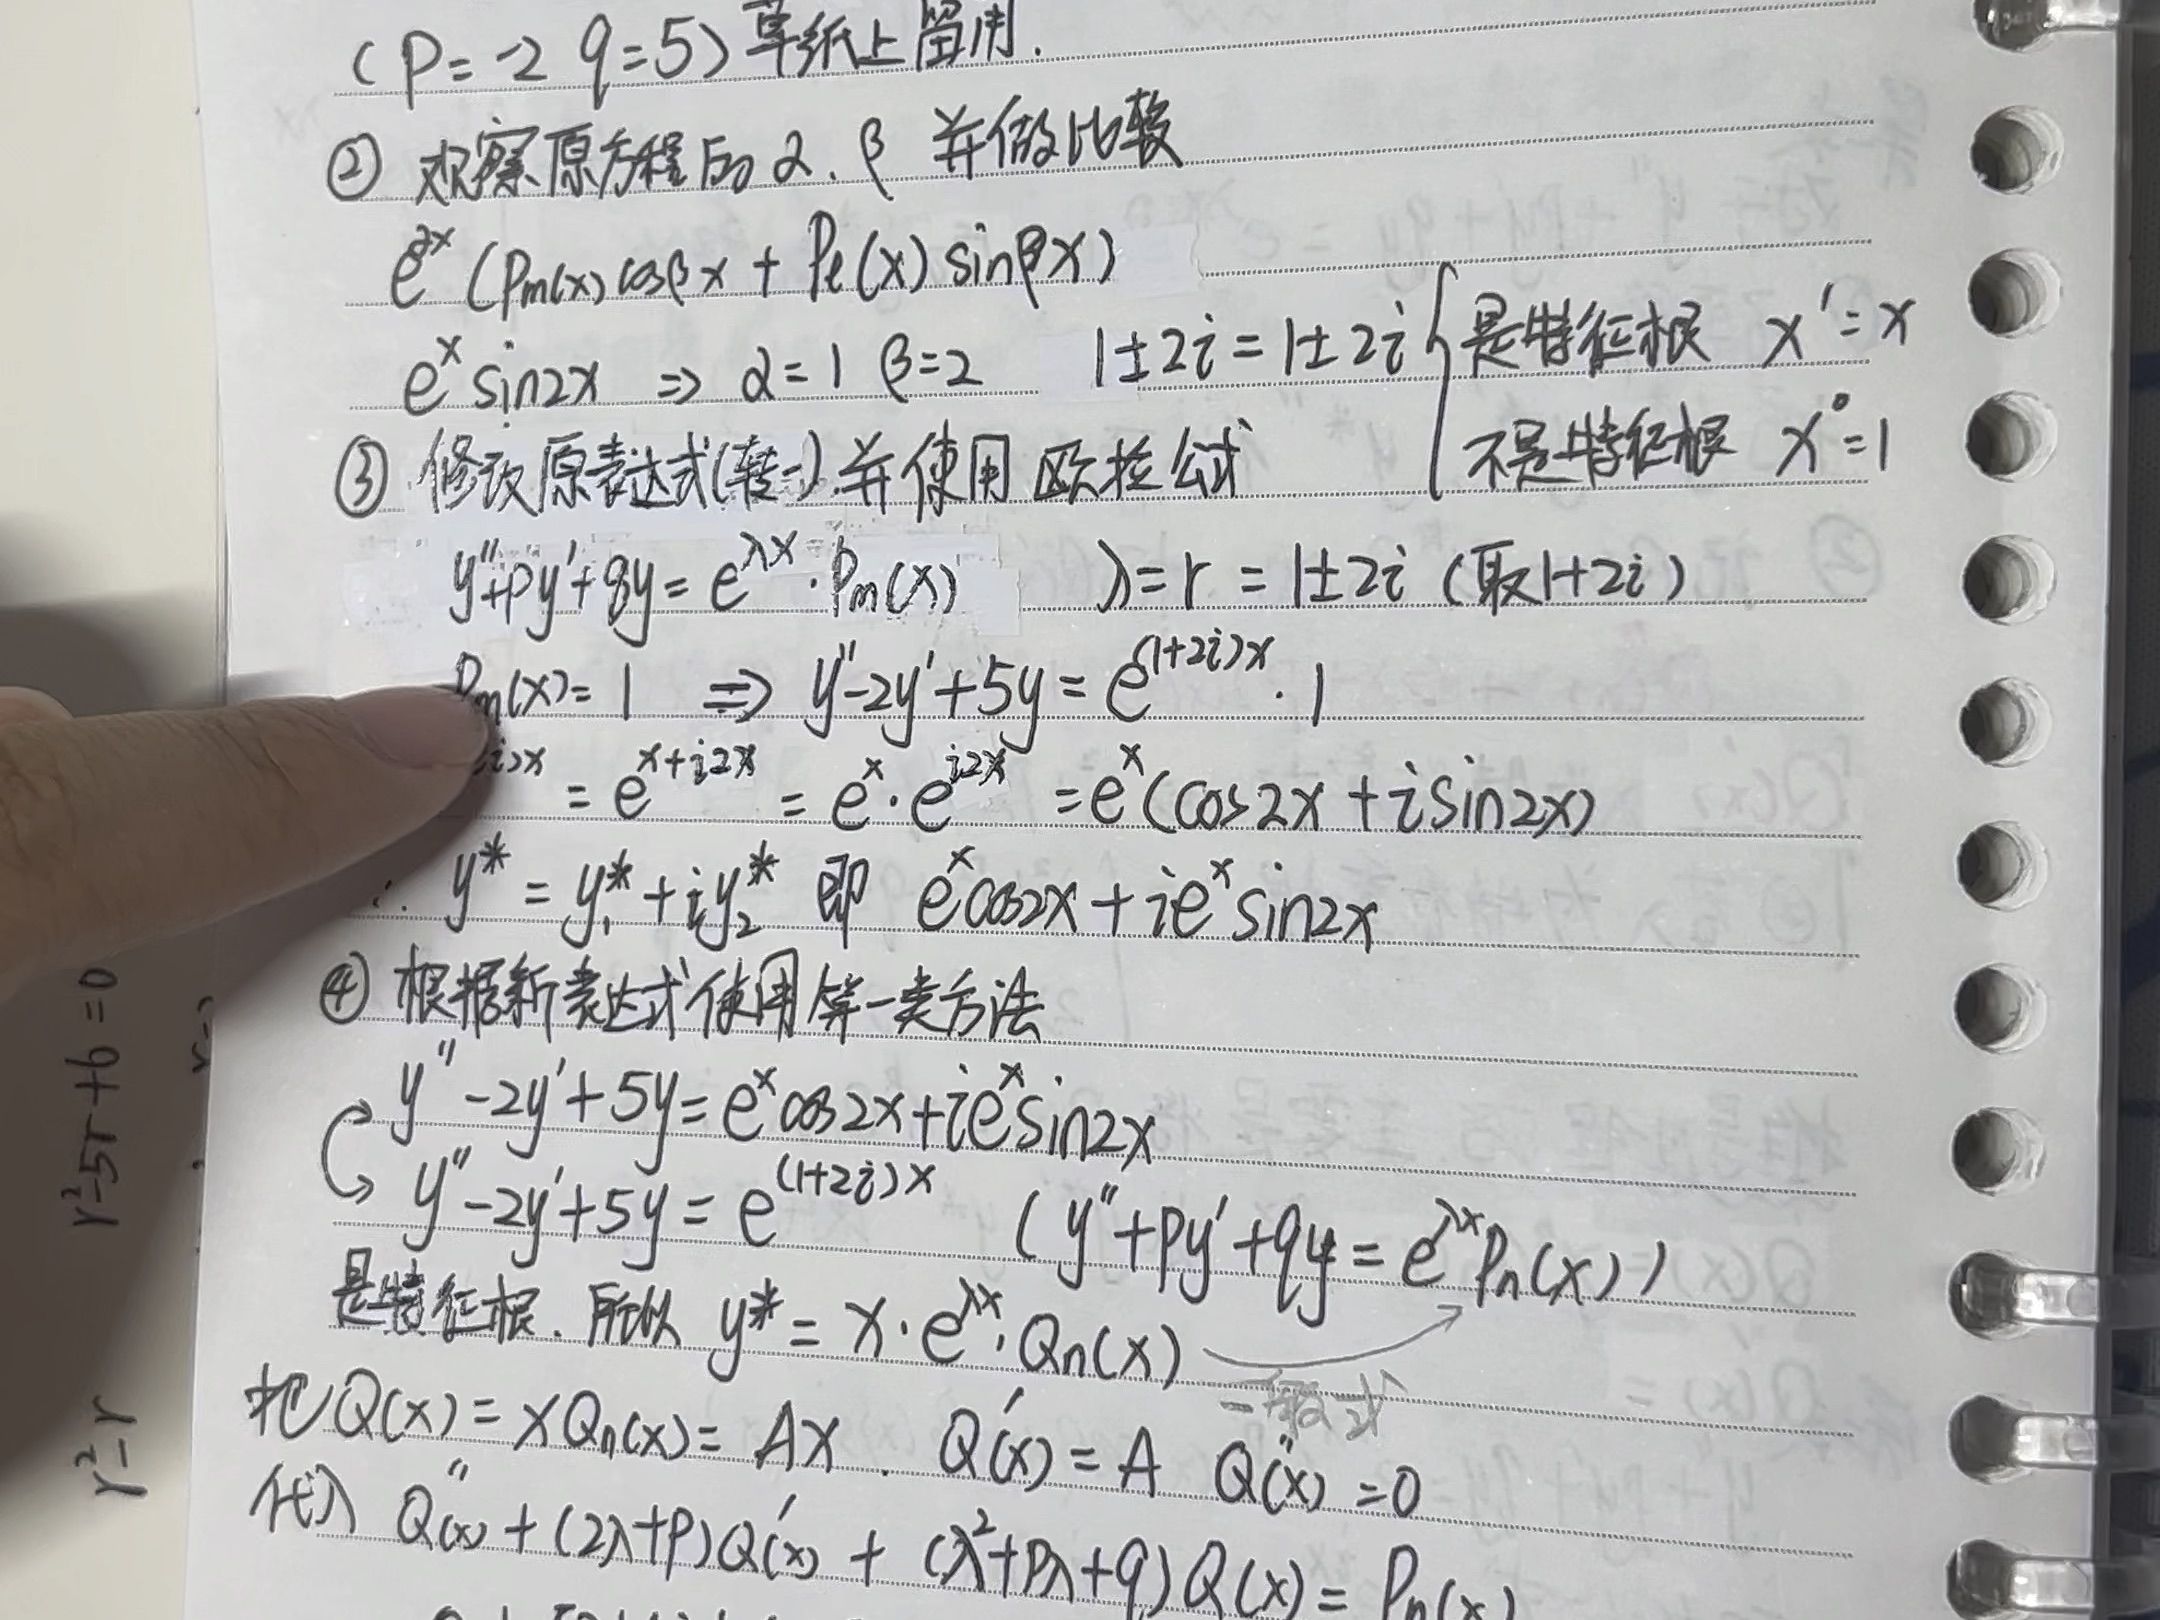 (P=-2 q=5)草纸上留用.
② 观察原方程的 α.β 并做比较
e^{αx} (Pm(x) cosβx + Pl(x) sinβx)
e^x sin2x ⇒ α=1 β=2 1±2i = 1±2i { 是特征根 x'=x
不是特征根 x^0=1
③ 修改原表达式(转一) 并使用欧拉公式
y''+py'+qy = e^{λx}·Pm(x) λ=r=1±2i (取1+2i)
Pm(x)=1 ⇒ y''-2y'+5y = e^{(1+2i)x}·1
i)x = e^{x+i2x} = e^x·e^{i2x} = e^x(cos2x+isin2x)
∴ y* = y₁*+iy₂* 即 e^x cos2x+ie^x sin2x
④ 根据新表达式使用第一类方法
y''-2y'+5y = e^x cos2x+ie^x sin2x
y''-2y'+5y = e^{(1+2i)x} (y''+py'+qy = e^{λx}Pn(x))
是特征根.所以 y* = x·e^{λx}·Qn(x)
一般式
把Q(x) = xQn(x) = Ax. Q'(x) = A Q''(x) = 0
代入 Q''(x) + (2λ+p)Q'(x) + (λ²+pλ+q)Q(x) = Pn(x)
r²-5r+6=0
r²-r